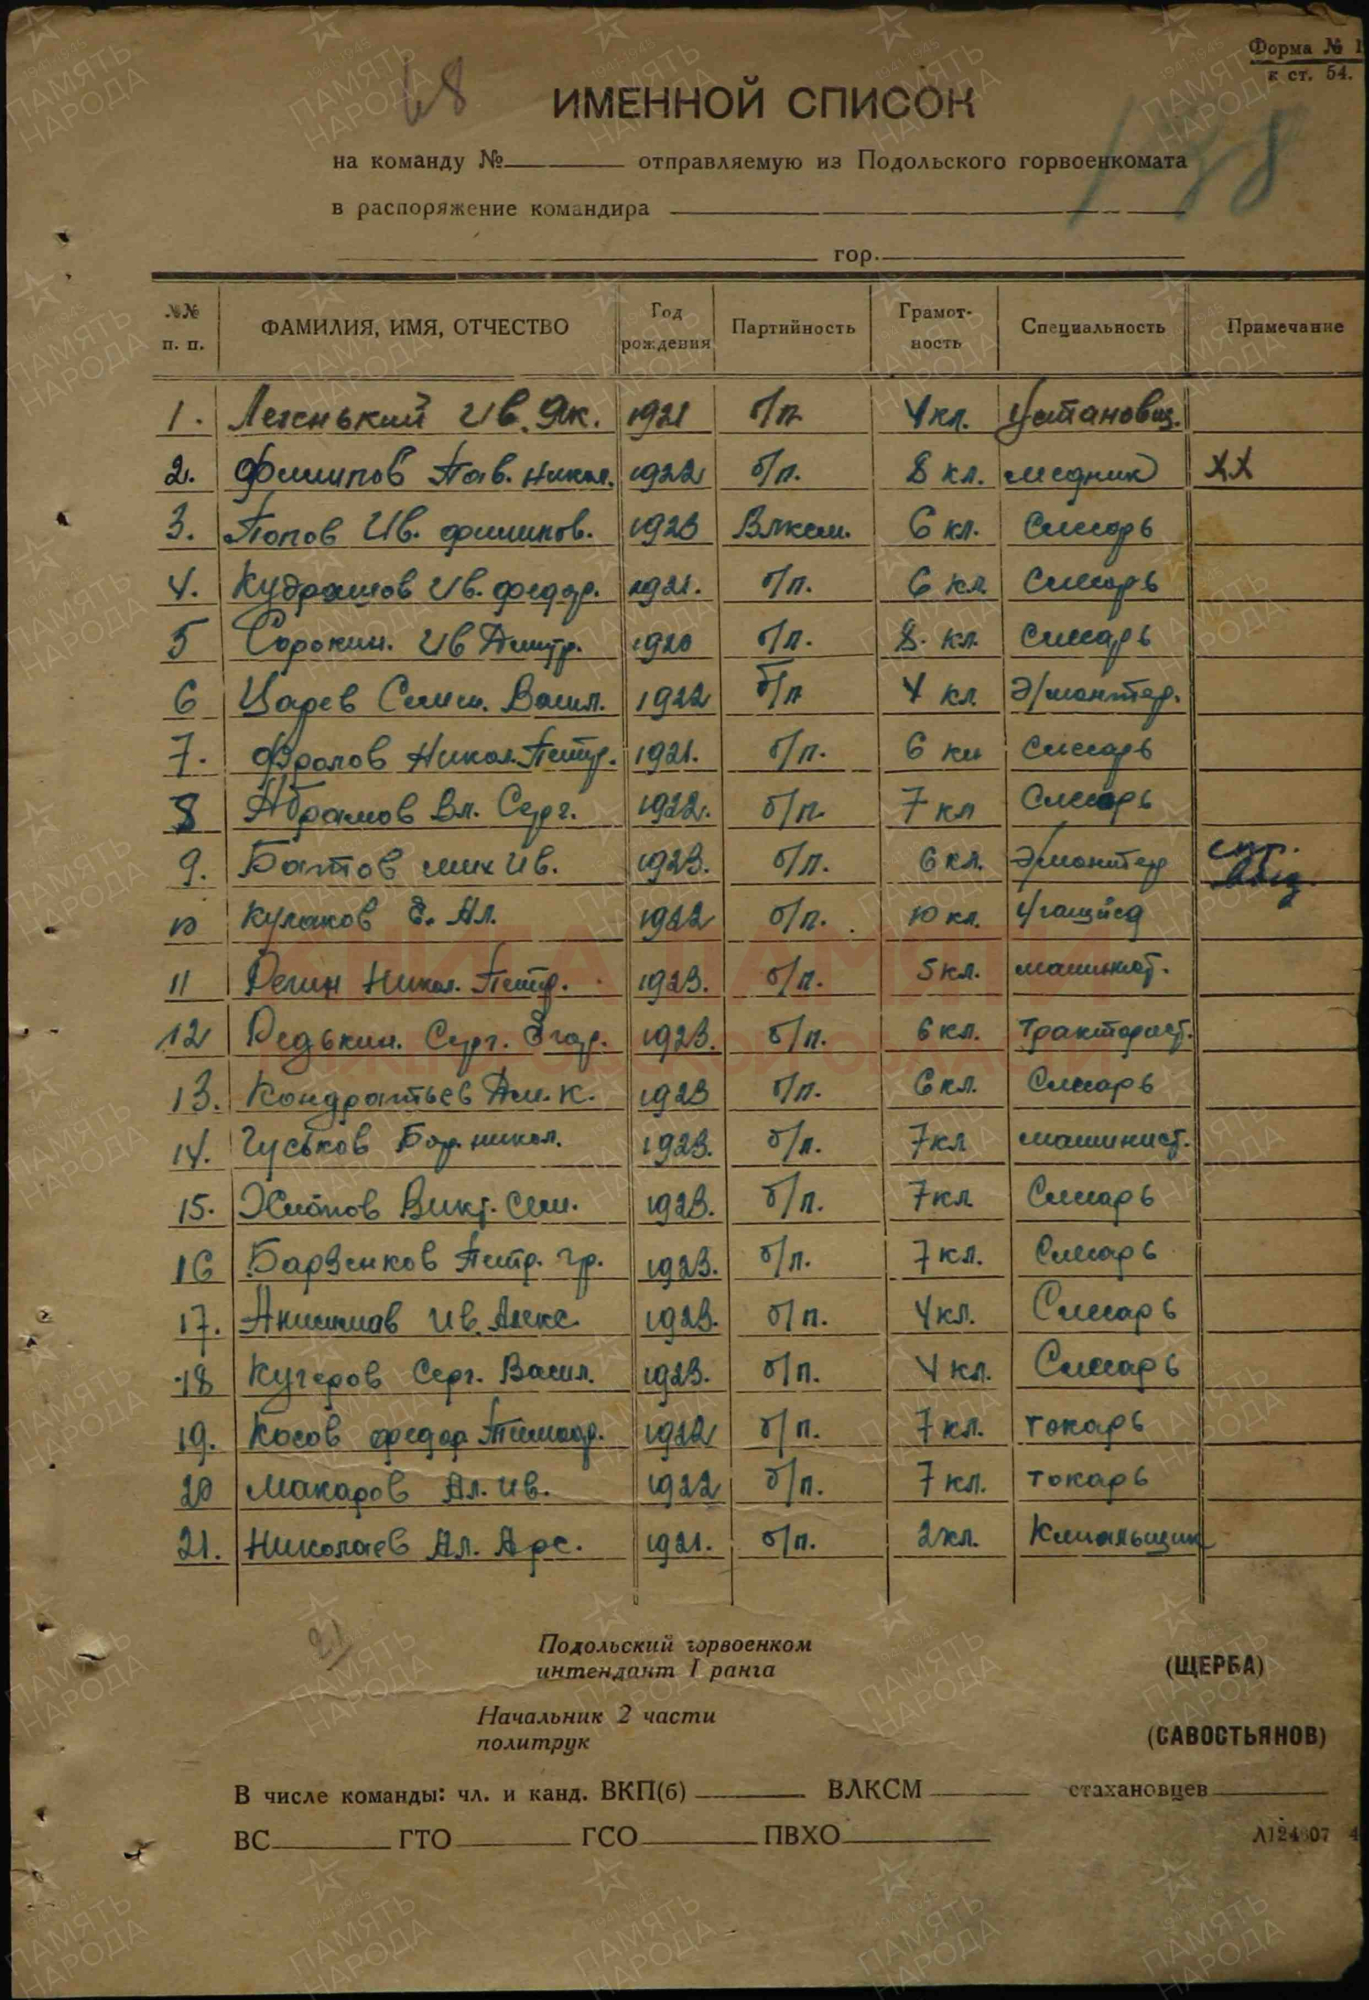 Форма № 1
к ст. 54.
68
ИМЕННОЙ СПИСОК
на команду № отправляемую из Подольского горвоенкомата
в распоряжение командира
гор.
№№ п. п. ФАМИЛИЯ, ИМЯ, ОТЧЕСТВО Год рождения Партийность Грамот-ность Специальность Примечание
1. Легенький Ив. Як. 1921 б/п 4 кл. Установщ.
2. Филипов Пав. Никол. 1922 б/п. 8 кл. медник ХХ
3. Попов Ив. филипов. 1923 Влксм. 6 кл. Слесарь
4. Кудрашов Ив. федор. 1921. б/п. 6 кл. Слесарь
5 Сорокин. Ив Дмитр. 1920 б/п. 8. кл. слесарь
6 Царев Семен. Васил. 1922 б/п 4 кл Э/монтер.
7. Фролов Никол. Петр. 1921. б/п. 6 кл слесарь
8 Абрамов Вл. Серг. 1922. б/п. 7 кл Слесарь
9. Батов мих Ив. 1923. б/п. 6 кл. Э/монтер
10 Кулаков Е. Ал. 1922 б/п. 10 кл. Учащийся
11 Регин Никол. Петр. 1923. б/п. 5 кл. машинист.
12 Редькин. Серг. Егор. 1923. б/п. 6 кл. Тракторист.
13. Кондратьев Дм. К. 1923 б/п. 6 кл. Слесарь
14. Гуськов Бор. никол. 1923. б/п. 7 кл машинист.
15. Хлопов Викт. Сем. 1923. б/п. 7 кл Слесарь
16 Барзенков Петр. Гр. 1923. б/п. 7 кл. Слесарь
17. Анисимов Ив. Алекс 1923. б/п. 4 кл. Слесарь
18 Кучеров Серг. Васил. 1923. б/п. 4 кл. Слесарь
19. Косов федор Тимоф. 1922 б/п. 7 кл. токарь
20 Макаров Ал. Ив. 1922 б/п. 7 кл. токарь
21. Николаев Ал. Арс. 1921. б/п. 2 кл.
21
Подольский горвоенком
интендант I ранга (ЩЕРБА)
Начальник 2 части
политрук (САВОСТЬЯНОВ)
В числе команды: чл. и канд. ВКП(б) ВЛКСМ стахановцев
ВС ГТО ГСО ПВХО
КНИГА ПАМЯТИ
НИЖЕГОРОДСКОЙ ОБЛАСТИ
1941-1945
ПАМЯТЬ
НАРОДА